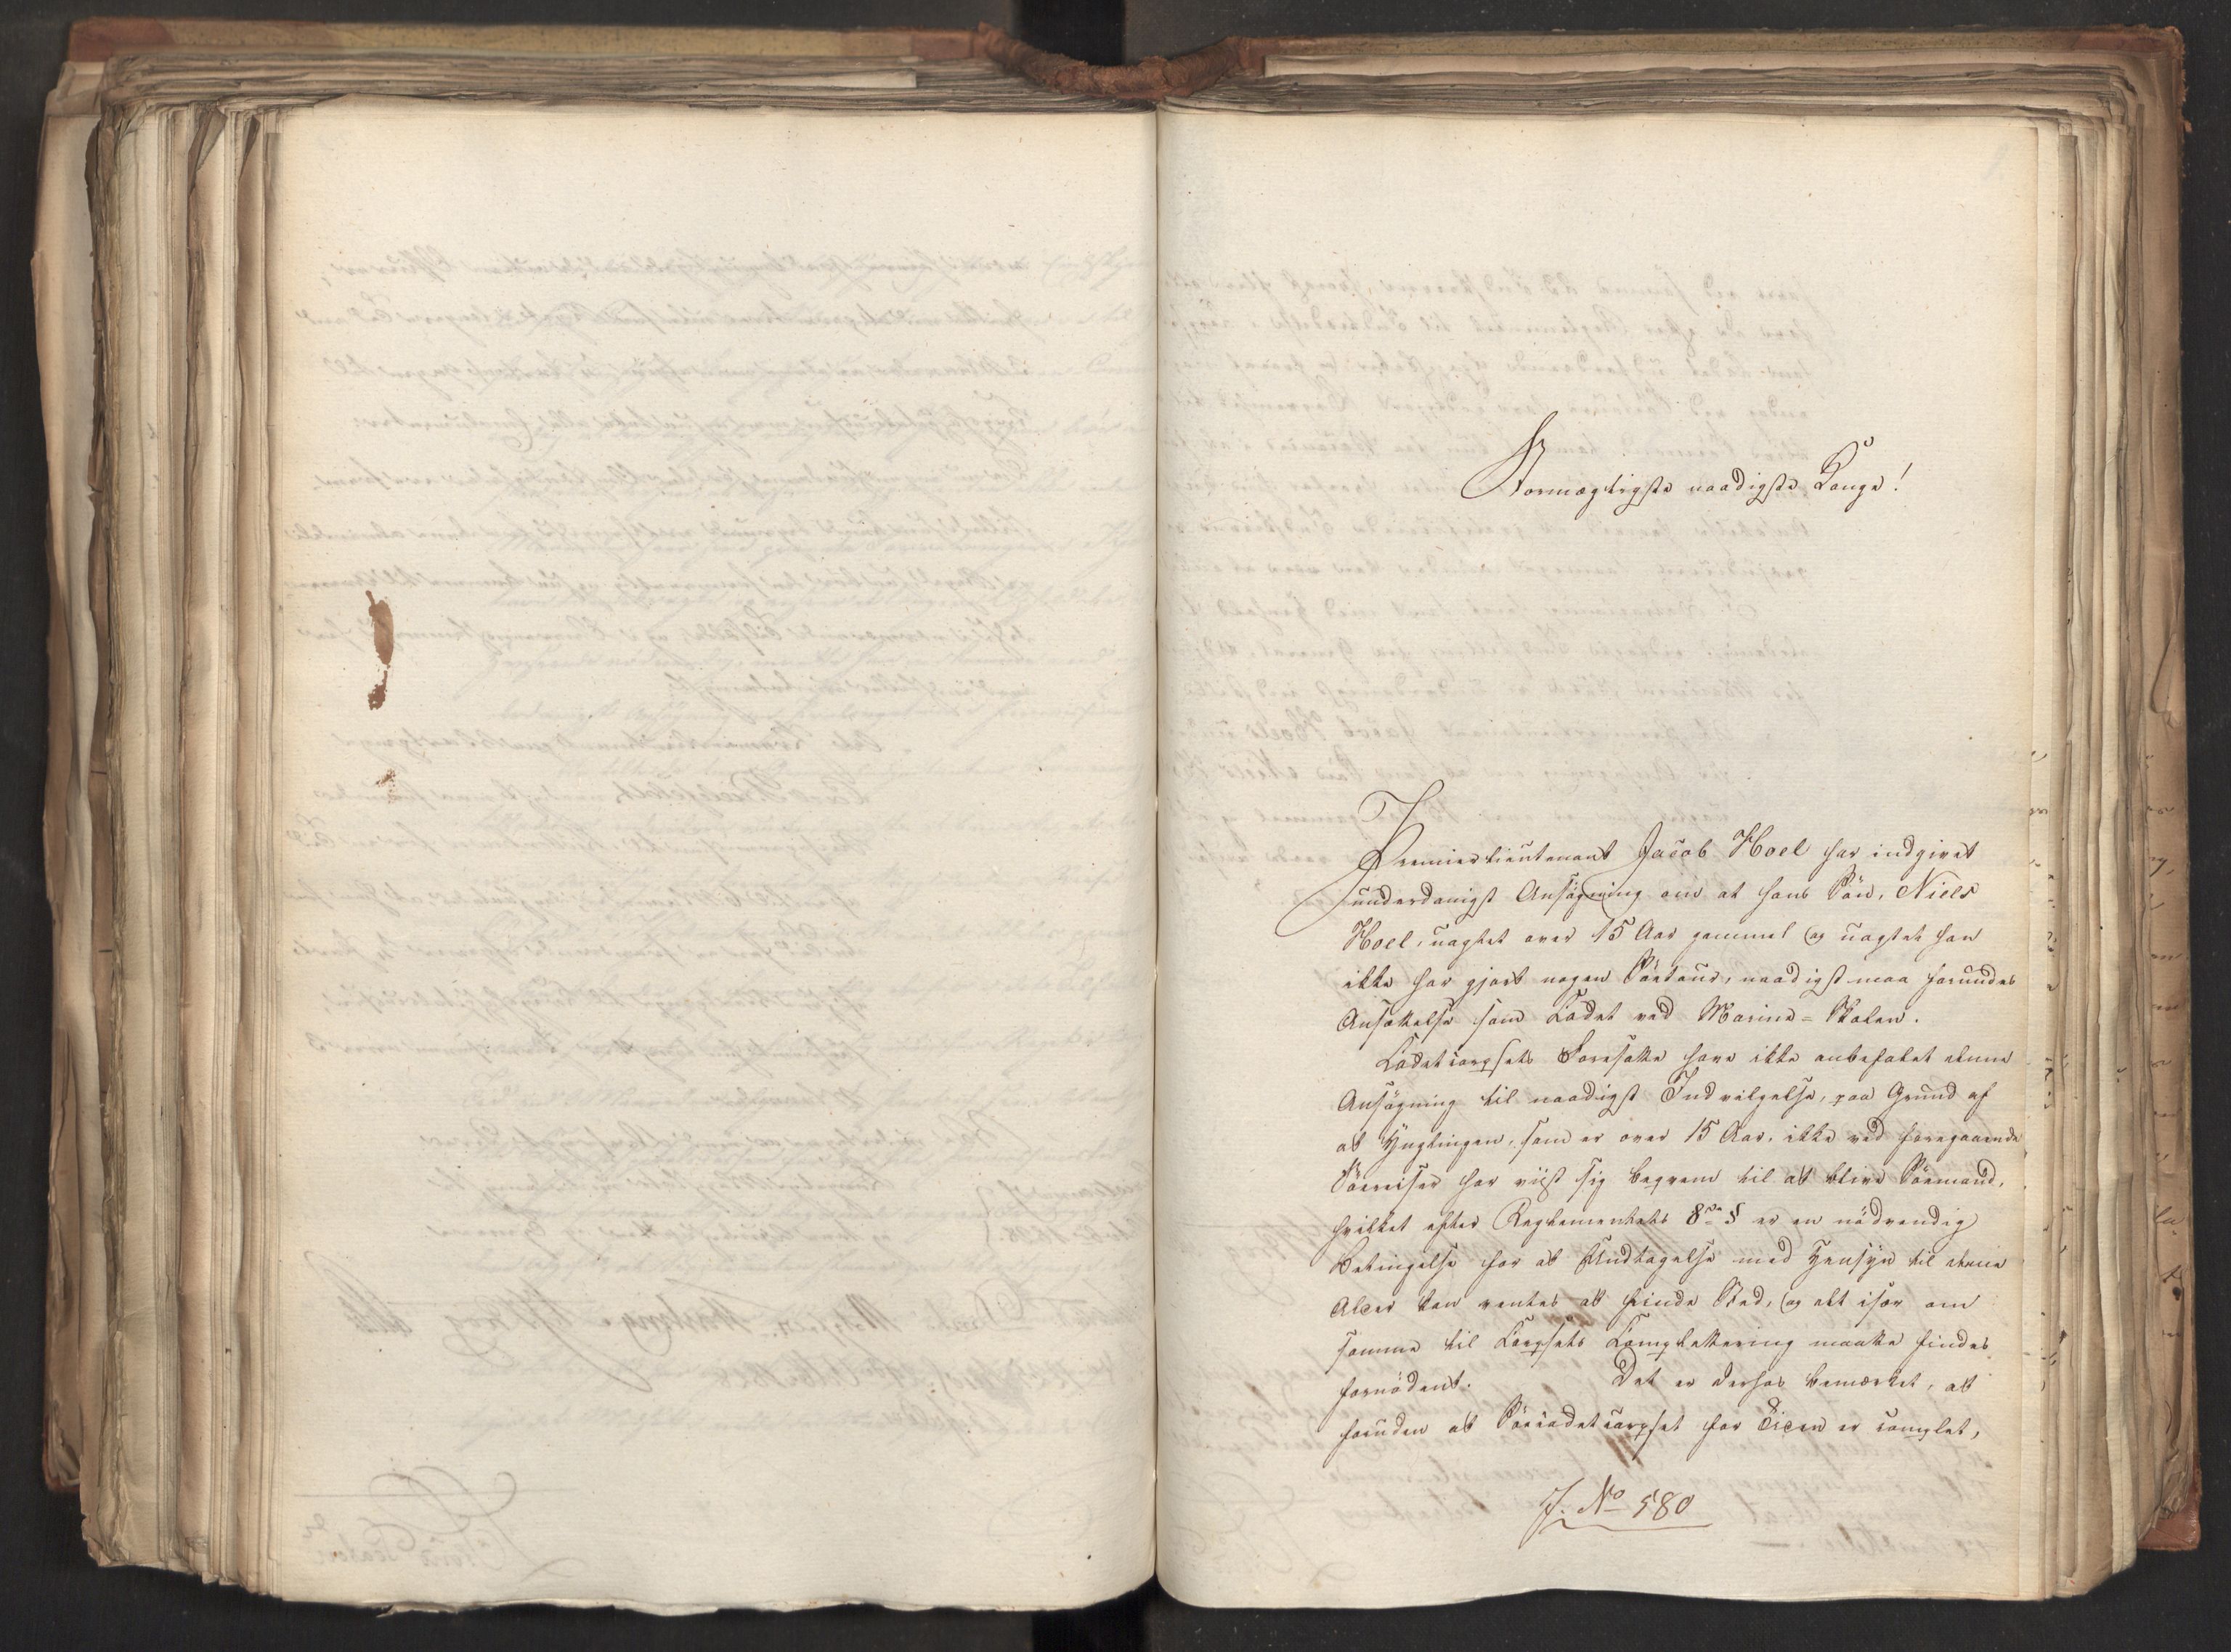 Stormægtigste naadigste Konge!
Premierlieutenant Jacob Hoel har indgivet
underdanigst Ansøgning om at hans Søn, Niels
Hoel, uagtet over 15 Aar gammel og uagtet han
ikke har gjort nogen Søetour, naadigst maa forundes
Ansættelse som Cadet ved Marine-Etaten.
Cadetcorpsets Foresatte have ikke anbefalet denne
Ansøgning til naadigst Indvilgelse, paa Grund af
at Ynglingen, som er over 15 Aar, ikke ved foregaaende
Søereiser har viist sig beqvem til at blive Søemand,
hvilket efter Reglementets 8de § er en nødvendig
Betingelse for at Undtagelse med Hensyn til denne
Alder kan ventes at finde Sted, og alt især om
samme til Corpsets Complettering maatte findes
fornødent. Det er derhos bemærket, at
foruden at Søecadetcorpset for Tiden er complet,
J. No 580